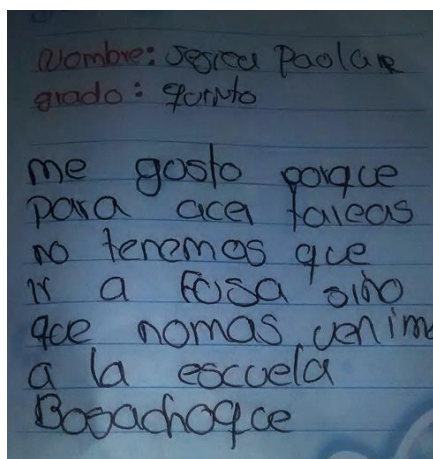 Nombre: Jesica Paola R
grado: quinto
me gosto porque
para acer tareas
no tenemos que
ir a Fosa sino
que nomas venim
a la escuela
Bosachoque